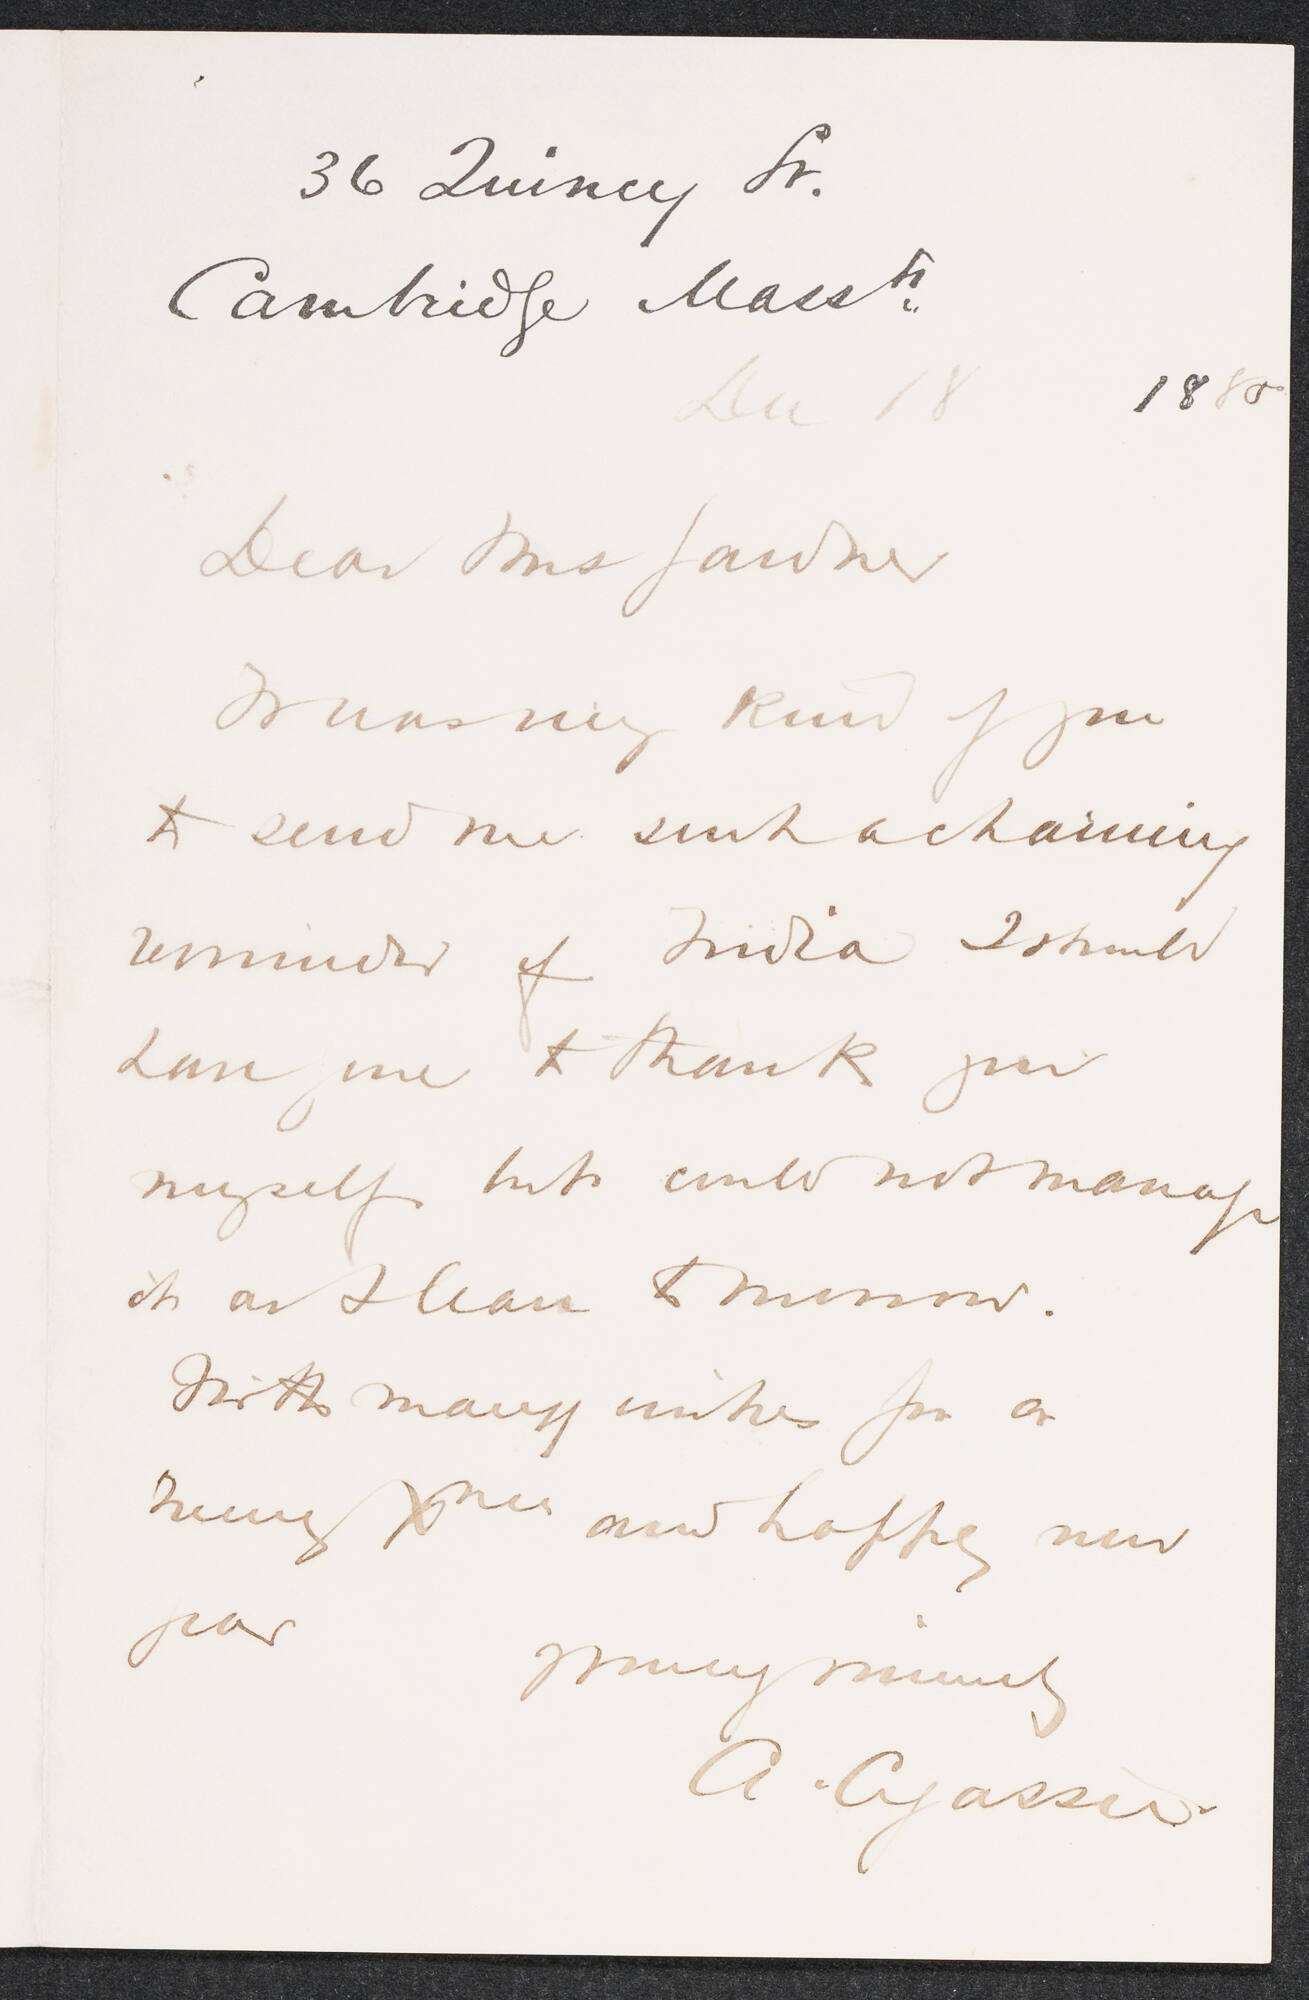 36 Quincy St.
Cambridge Massts.
Dec 18 188
Dear Mrs Gardner
It was very kind of you
to send me such a charming
reminder of India I should
have gone to thank you
myself but could not manage
it as I leave tomorrow.
With many wishes for a
merry Xmas and happy new
year
yours very sincerely
A. Agassiz